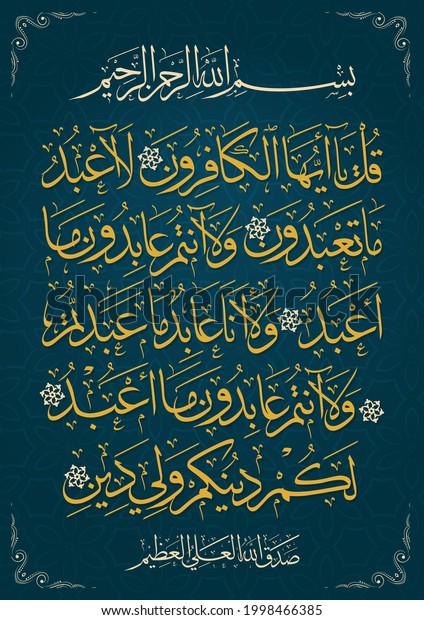 بِسْمِ اللهِ الرَّحْمنِ الرَّحِيْمِ
قُلْ يَا أَيُّهَا الْكَافِرُونَ لَا أَعْبُدُ
مَا تَعْبُدُونَ وَلَا أَنْتُمْ عَابِدُونَ مَا
أَعْبُدُ وَلَا أَنَا عَابِدٌ مَا عَبَدْتُمْ
وَلَا أَنْتُمْ عَابِدُونَ مَا أَعْبُدُ
لَكُمْ دِينُكُمْ وَلِيَ دِينِ
صَدَقَ اللهُ الْعَلِيُّ الْعَظِيْمُ
shutterstock
shutterstock.com · 1998466385